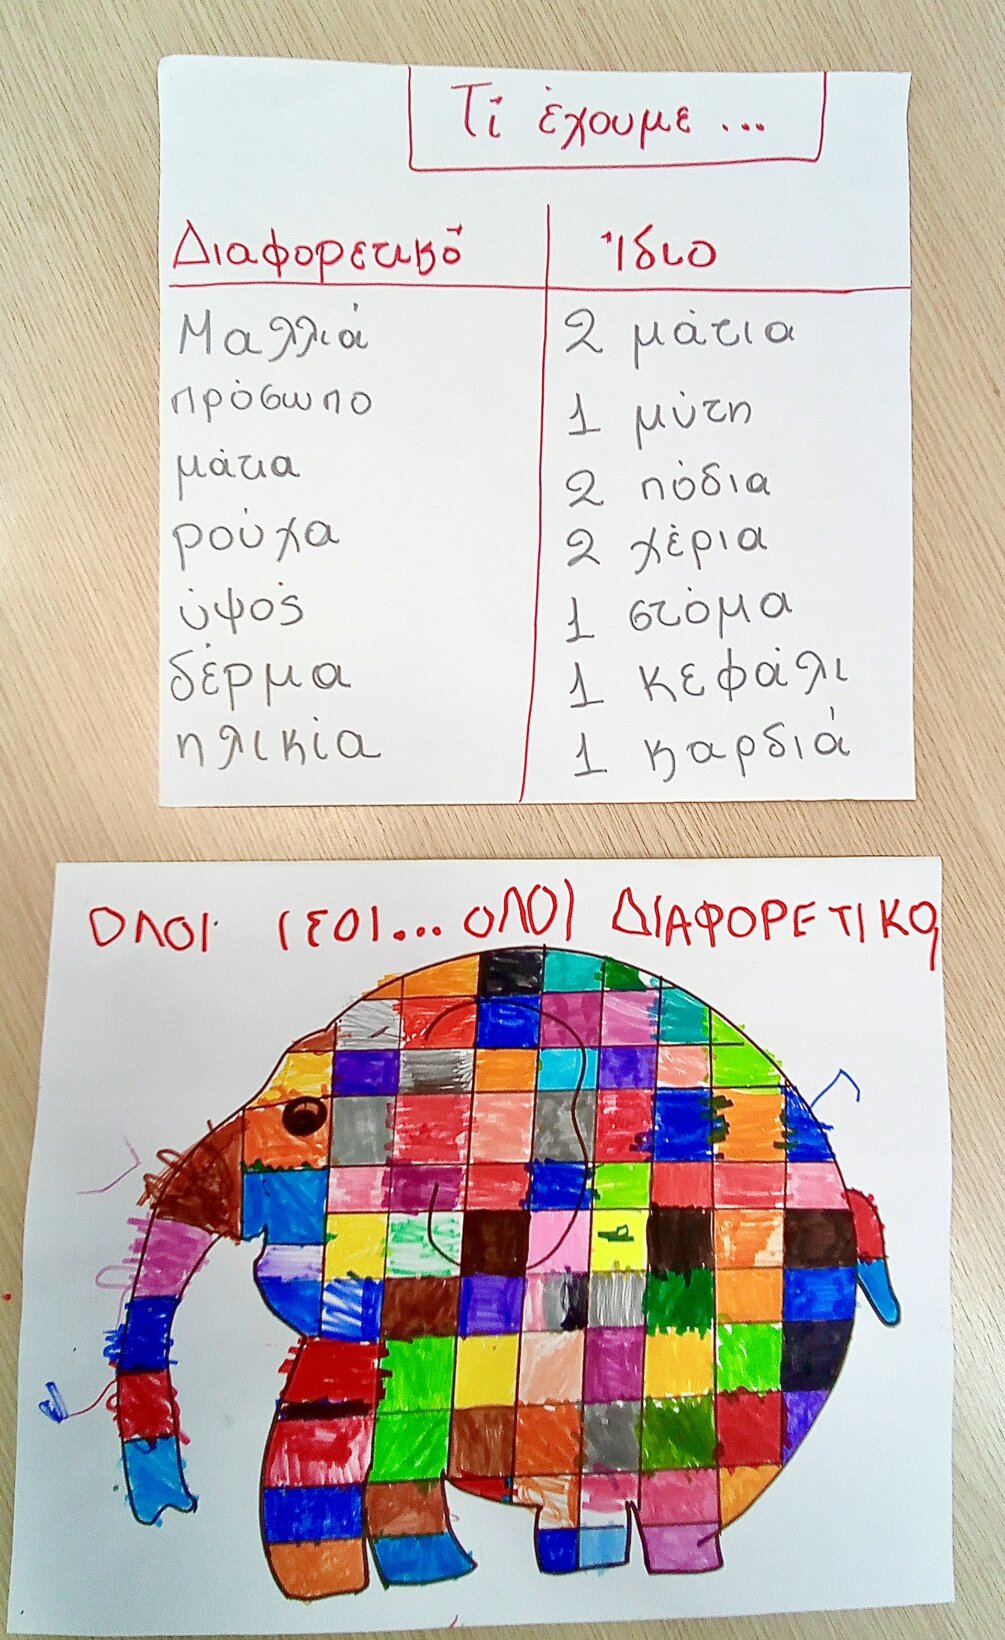 Τί έχουμε ...
Διαφορετικό Ίδιο
Μαλλιά 2 μάτια
πρόσωπο 1 μύτη
μάτια 2 πόδια
ρούχα 2 χέρια
ύψος 1 στόμα
δέρμα 1 κεφάλι
ηλικία 1 καρδιά
ΟΛΟΙ ΙΣΟΙ... ΟΛΟΙ ΔΙΑΦΟΡΕΤΙΚΟΙ